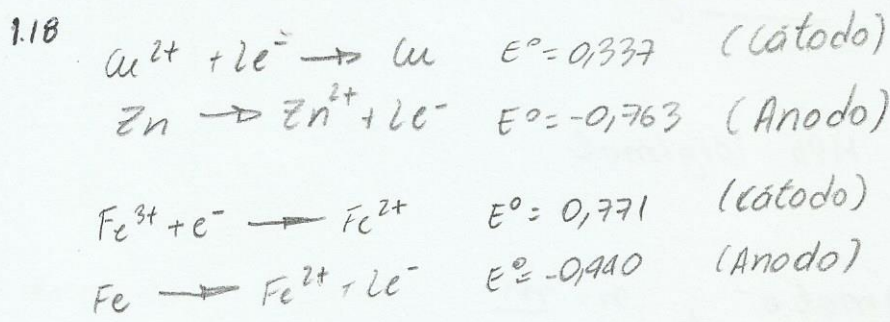 1.18
Cu²⁺ + 2e⁻ → Cu E° = 0,337 (Cátodo)
Zn → Zn²⁺ + 2e⁻ E° = -0,763 (Anodo)
Fe³⁺ + e⁻ → Fe²⁺ E° = 0,771 (Cátodo)
Fe → Fe²⁺ + 2e⁻ E° = -0,440 (Anodo)